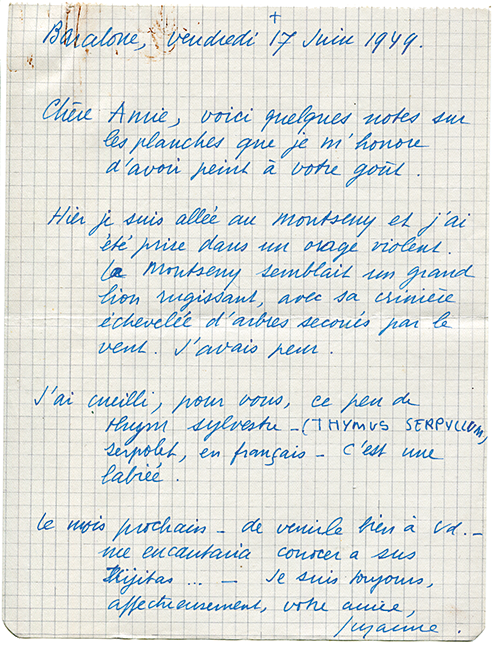 Barcelone, vendredi 17 Juin 1949.
Chère Amie, voici quelques notes sur
les planches que je m'honore
d'avoir peint à votre goût.
Hier je suis allée au Montseny et j'ai
été prise dans un orage violent.
Le Montseny semblait un grand
lion rugissant, avec sa crinière
échevelée d'arbres secoués par le
vent. J'avais peur.
J'ai cueilli, pour vous, ce peu de
thym sylvestre - (THYMUS SERPYLLUM,
serpolet, en français - C'est une
labiée.
Le mois prochain - de venirle bien à Vd. -
me encantaria conocer a sus
Hijitas ... - Je suis toujours,
affectueusement, votre amie,
Suzanne.